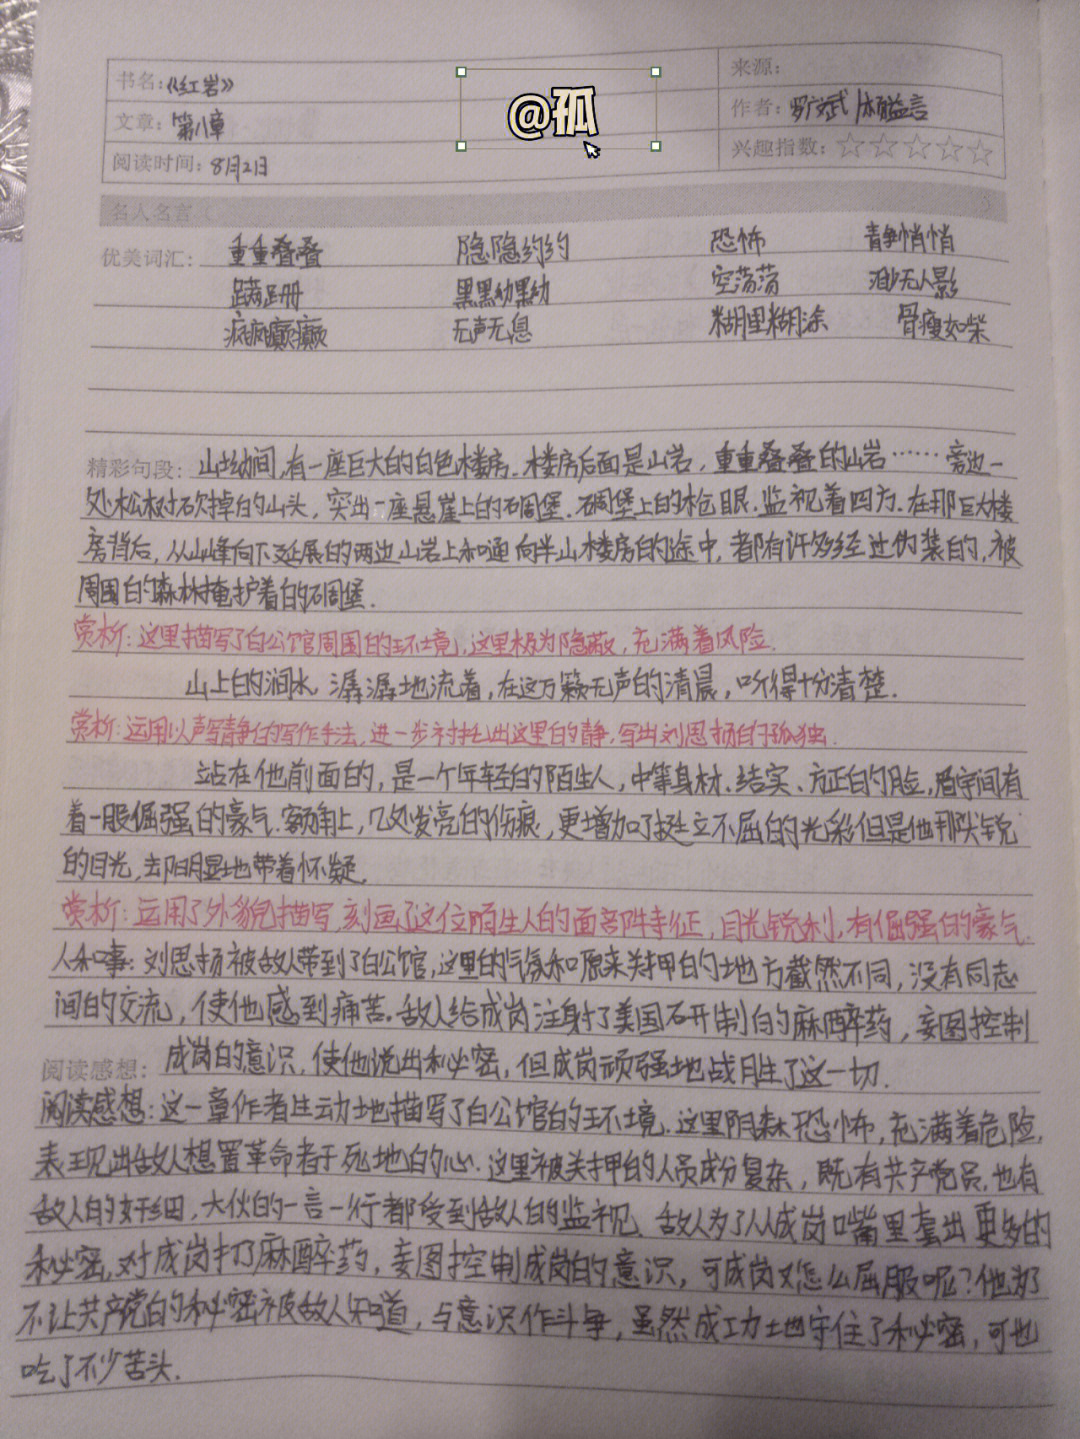 书名:《红岩》
@孤
来源:
文章: 第八章
作者: 罗广斌/杨益言
阅读时间: 8月21日
兴趣指数: ☆☆☆☆☆
名人名言
优美词汇: 重重叠叠 隐隐约约 恐怖 静悄悄
蹒跚 黑黝黝 空荡荡 渺无人影
疯疯癫癫 无声无息 糊里糊涂 骨瘦如柴
精彩句段: 山坳间,有一座巨大的白色楼房.楼房后面是山岩,重重叠叠的山岩……旁边一
处松树砍掉的山头,突出一座悬崖上的碉堡.碉堡上的枪眼.监视着四方.在那巨大楼
房背后,从山峰向下延展的两边山岩上和通向半山楼房的途中,都有许多经过伪装的,被
周围的森林掩护着的碉堡.
赏析:这里描写了白公馆周围的环境,这里极为隐蔽,充满着风险.
山上的涧水,潺潺地流着,在这万籁无声的清晨,听得十分清楚.
赏析:运用以声写静的写作手法,进一步衬托出这里的静,写出刘思扬的孤独.
站在他前面的,是一个年轻的陌生人,中等身材、结实、方正的脸,眉宇间有
着一股倔强的豪气.额角上,几处发亮的伤痕,更增加了挺立不屈的光彩但是他那尖锐
的目光,却明显地带着怀疑.
赏析:运用了外貌描写,刻画了这位陌生人的面部特征,目光锐利,有倔强的豪气.
人和事:刘思扬被敌人带到了白公馆,这里的气氛和原来关押的地方截然不同,没有同志
间的交流,使他感到痛苦.敌人给成岗注射了美国研制的麻醉药,妄图控制
阅读感想: 成岗的意识,使他说出秘密,但成岗顽强地战胜了这一切.
阅读感想:这一章作者生动地描写了白公馆的环境.这里阴森恐怖,充满着危险,
表现出敌人想置革命者于死地的心.这里被关押的人员成分复杂,既有共产党员,也有
敌人的奸细,大伙的一言一行都受到敌人的监视.敌人为了从成岗嘴里套出更多的
秘密,对成岗打了麻醉药,妄图控制成岗的意识,可成岗又怎么屈服呢?他为了
不让共产党的秘密被敌人知道,与意识作斗争,虽然成功地守住了秘密,可也
吃了不少苦头.